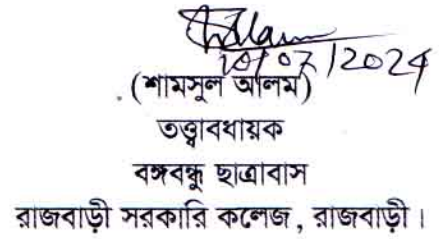 10/07/2024
(শামসুল আলম)
তত্ত্বাবধায়ক
বঙ্গবন্ধু ছাত্রাবাস
রাজবাড়ী সরকারি কলেজ, রাজবাড়ী।